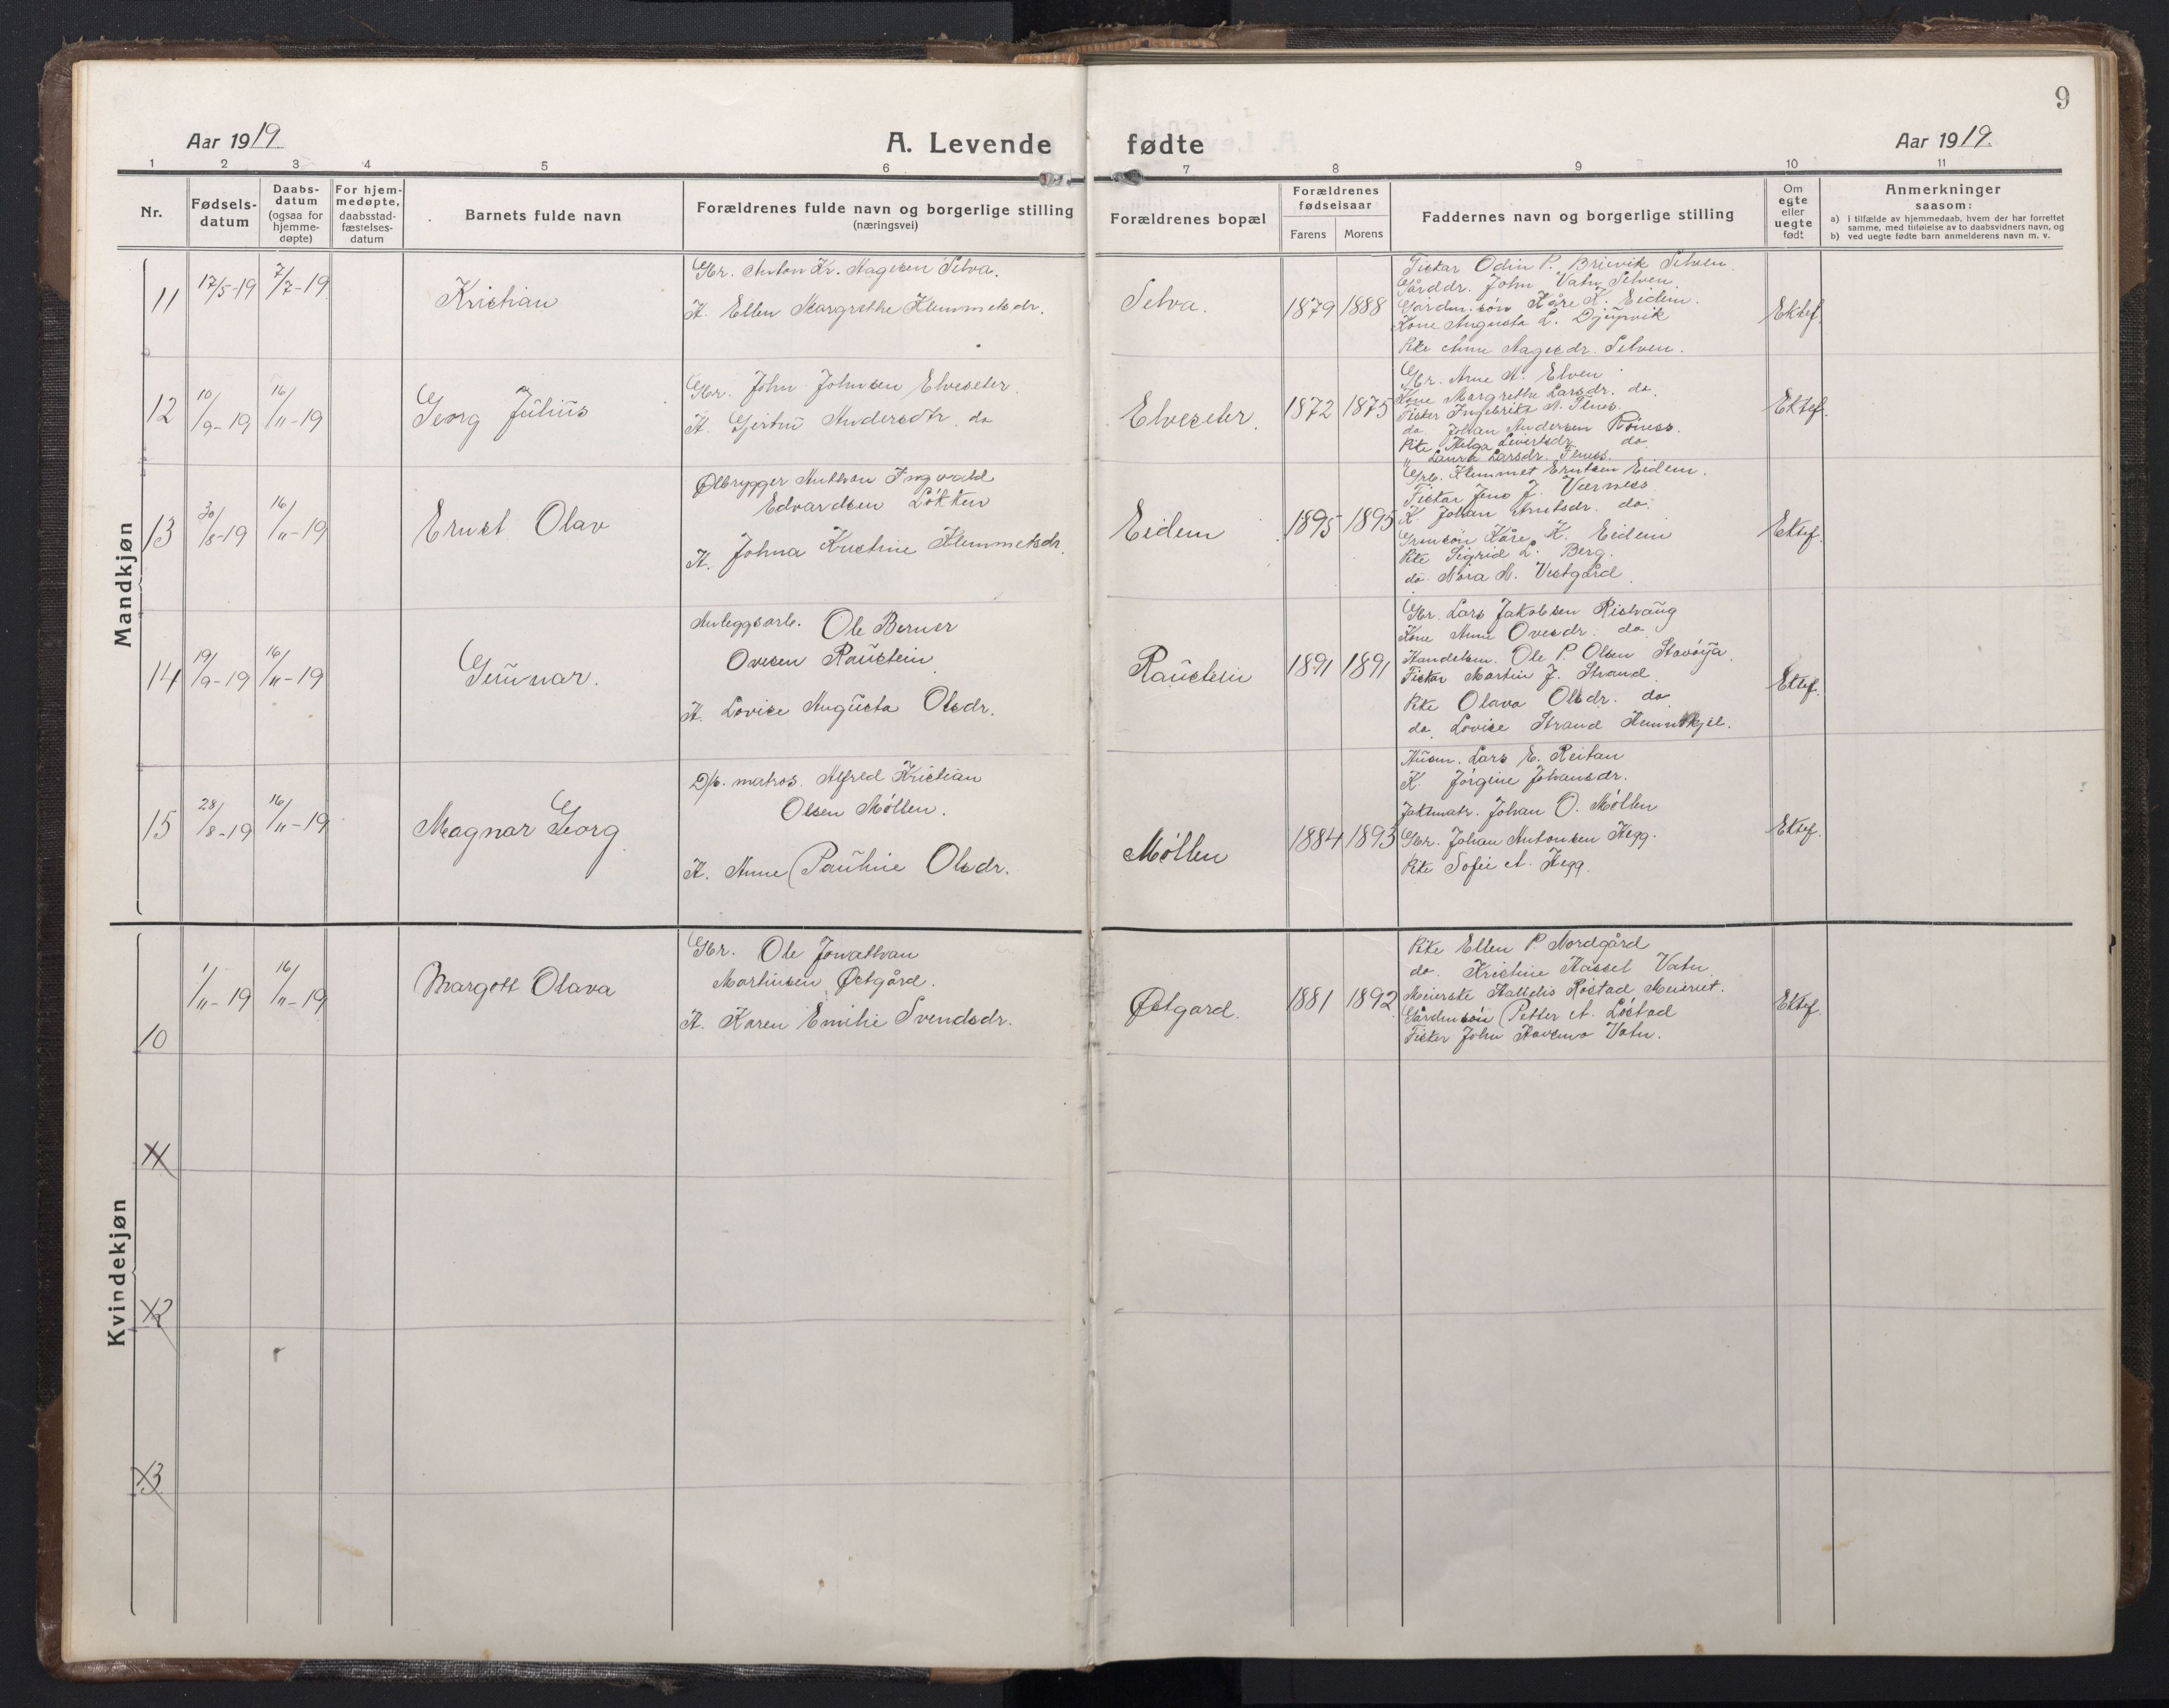 9
Aar 1919
A. Levende fødte
Aar 1919.
1 2 3 4 5 6 7 8 9 10 11
Nr.
Fødsels-
datum
Daabs-
datum
(ogsaa for
hjemme-
døpte)
For hjem-
medøpte,
daabsstad-
fæstelses-
datum
Barnets fulde navn
Forældrenes fulde navn og borgerlige stilling
(næringsvei)
Forældrenes bopæl
Forældrenes
fødselsaar
Farens Morens
Faddernes navn og borgerlige stilling
Om
egte
eller
uegte
født
Anmerkninger
saasom:
a) i tilfælde av hjemmedaab, hvem der har forrettet
samme, med tilføielse av to daabsvidners navn, og
b) ved uegte fødte barn anmelderens navn m. v.
Mandkjøn
11 17/5-19 7/7-19
Kristian
Gbr. Anton Kr. Hagesen Selva.
K. Ellen Margrethe Klemmetsdr.
Selva.
1879 1888
Fisker Odin P. Brievik Selven.
Gårddr. John Vatn Selven.
Gårdm. søn Kåre K. Eidem.
Kone Augusta L. Djupvik
Pike Anne Hagesdr. Selven.
Ektef.
12 10/9-19 16/11-19
Georg Julius
Gbr. John Johnsen Elveseter.
K. Gjertru Andersdtr. do
Elveseter.
1872 1875
Gbr. Arne A. Elven
Kone Margrethe Larsdr. do.
Fisker Ingebrikt A. Flnes.
do. Johan Andersen Röness.
Pike Helga Sivertsdr. do
" Laura Larsdr. Flness.
Ektef.
13 30/8-19 16/11-19
Ernst Olav
Ølbrygger Anthon Ingvald
Edvardsen Løkken
K. Johna Kristine Klemmetsdr.
Eidem
1895 1895
Grb. Klemmet Erntsen Eidem.
Fisker Jens J. Værness
K. Johan Arntsdr. do.
Grmsøn Kåre K. Eidem
Pike Sigrid L. Berg.
do. Nora A. Vestgård
Ektef.
14 19/9-19 16/11-19
Gunnar.
Anleggsarb. Ole Berner
Ovesen Raustein
K. Lovise Augusta Olsdr.
Raustein
1891 1891
Gbr. Lars Jakobsen Risvaug
Kone Anne Ovesdr. do
Handelsm. Ole P. Olsen Stavøya.
Fisker Martin J. Strand
Pike Olava Olsdr. do
do. Lovise Strand Hemnskjel.
Ektef.
15 28/8-19 16/11-19
Magnar Georg
D/s. matros. Alfred Kristian
Olsen Møllen.
K. Anne Pauline Olsdr.
Møllen
1884 1893
Husm. Lars E. Reitan
K. Jørgine Johansdr.
Jaktmatr. Johan O. Møllen
Gbr. Johan Antonsen Hegg.
Pike Sofie A. Hegg.
Ektef.
Kvindekjøn
10 1/11-19 16/11-19
Margott Olava
Gbr. Ole Jonathan
Martinsen Østgård.
K. Karen Emilie Svendsdr.
Østgard.
1881 1892
Pike Ellen P. Nordgård
do. Kristine Hassel Vatn
Meierske Halldis Røstad Meieriet.
Gårdmsön Petter A. Löstad
Fisker John Havemo Vatn.
Ektef.
11
12
13